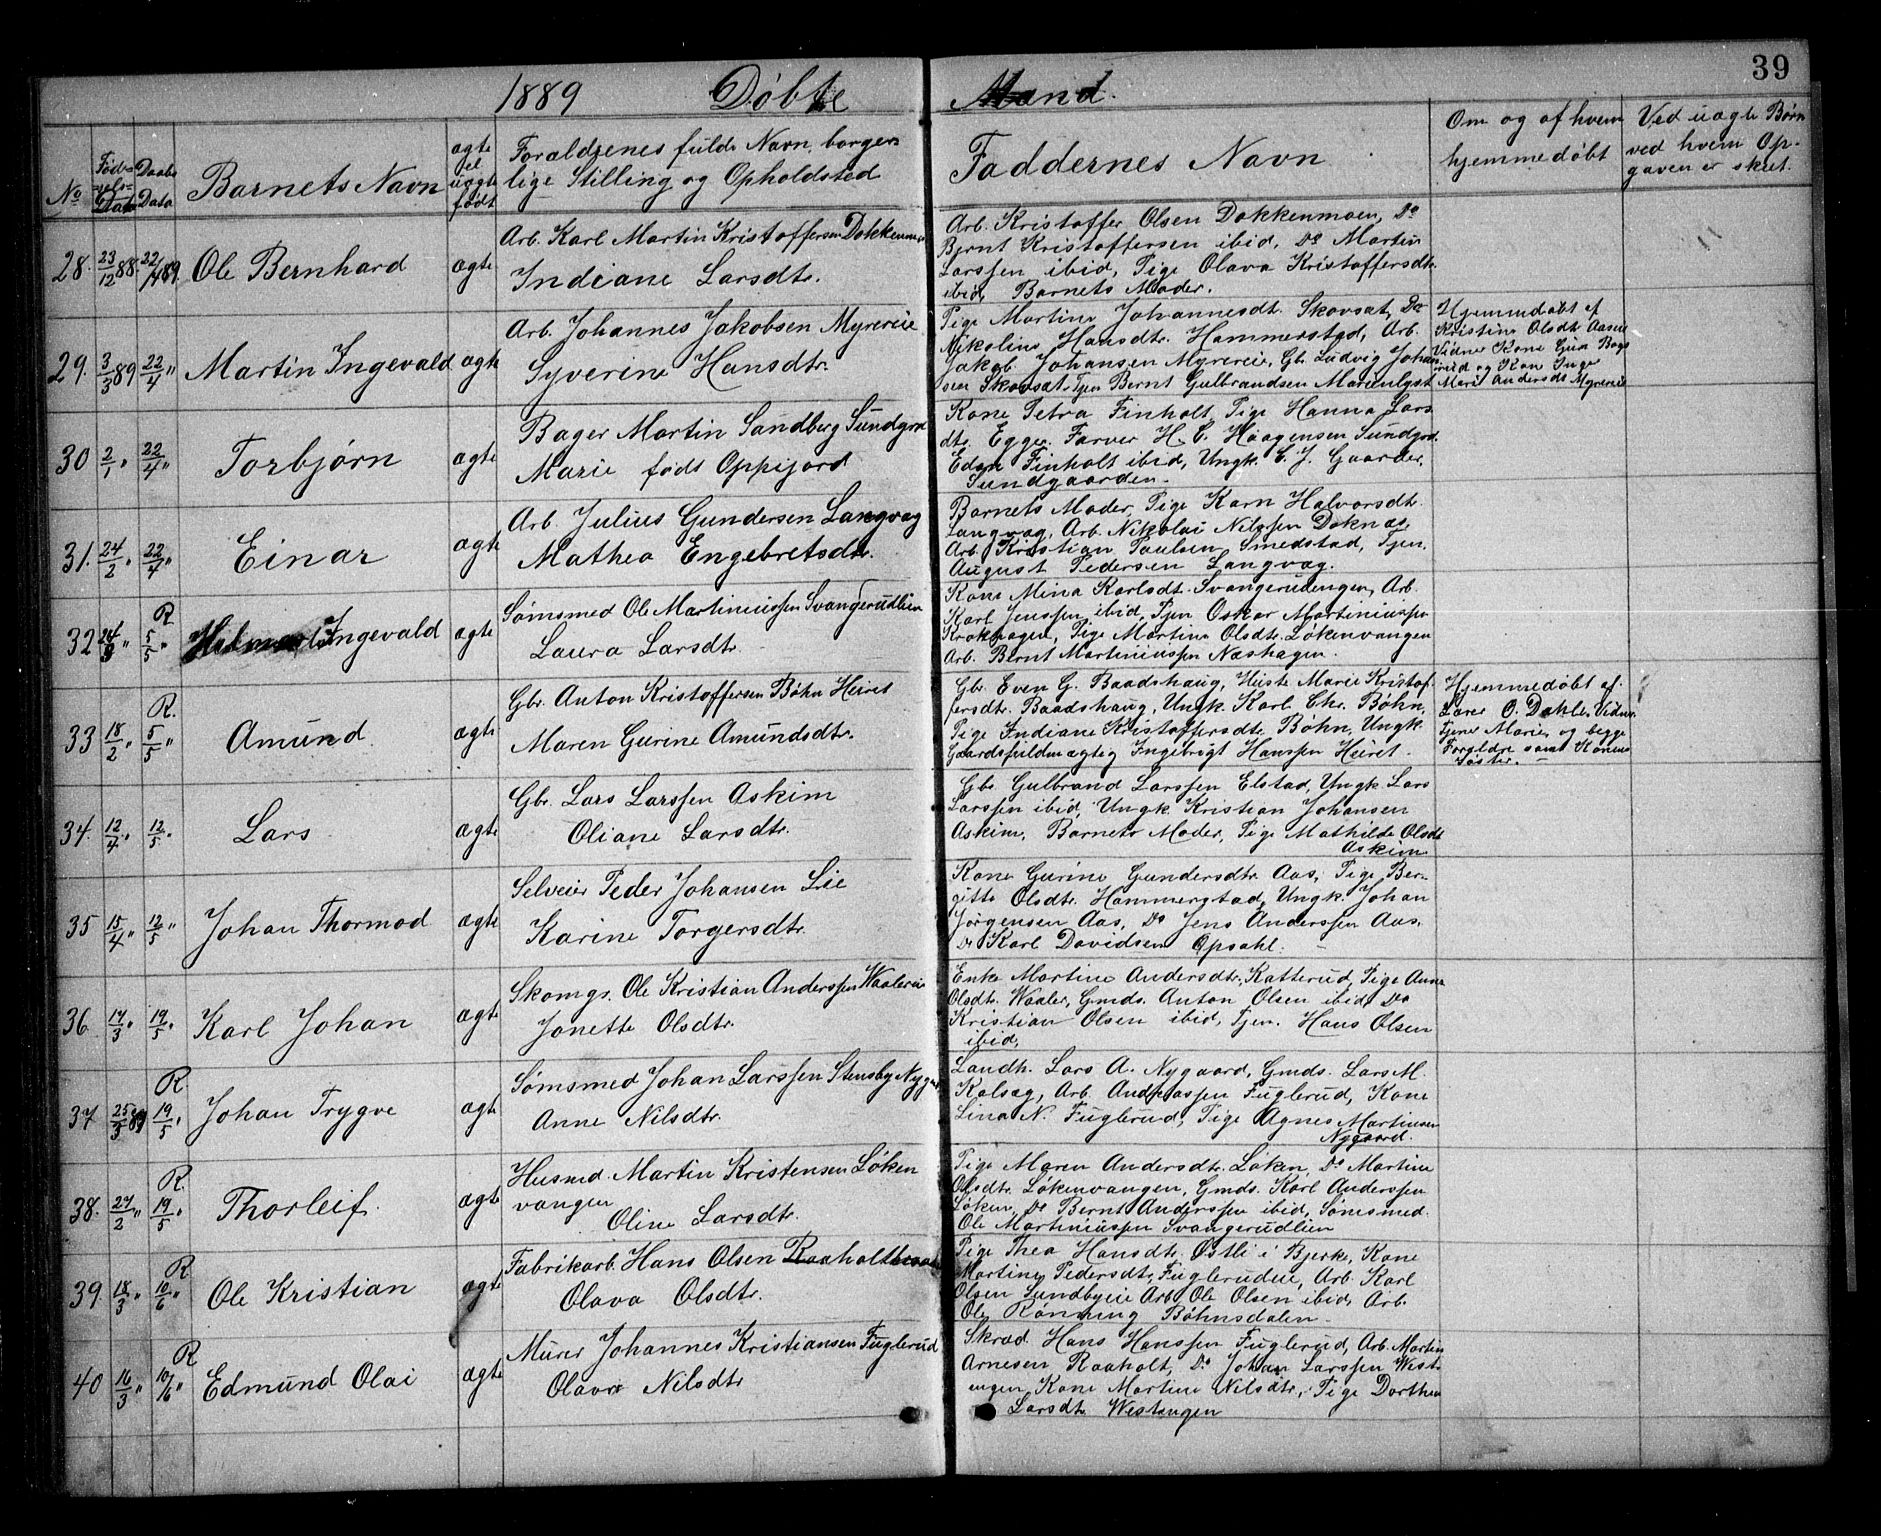 39
1889 Døbte Mænd.
No
Fødsels-Data
Daabs Data
Barnets Navn
ægte el uægte født
Forældrenes fulde Navn, borgerlige Stilling og Opholdsted
Faddernes Navn
Om og af hvem hjemmedøbt
Ved uægte Børn ved hvem Opgaven er skeet.
28. 23/12 88. 22/4 89. Ole Bernhard ægte
Arb. Karl Martin Kristoffersen Dokkenmoen
Indiane Larsdtr.
Arb. Kristoffer Olsen Dokkenmoen, Do
Bernt Kristoffersen ibid, Do Martin
Larssen ibid, Pige Olava Kristoffersdtr.
ibid, Barnets Moder.
29. 3/3 89 22/4 " Martin Ingevald ægte
Arb. Johannes Jakobsen Myrereie
Syverine Hansdtr.
Pige Martine Johannesdt. Skovsæt, Do
Nikoline Hansdtr. Hammerstad, Arb.
Jakob Johansen Myrereie, Gbr. Ludvig Johan-
sen Skovsæt, Tjen Bernt Gulbrandsen Marienlyst
Hjemmedøbt af
Kristine Olsdt. Aasen
Vidner Kone Gina Bogs
rud og Kone Inger
Marie Andersdt Myrereie
30 2/1 " 22/4 " Torbjørn ægte
Bager Martin Sandberg Sundgrd
Marie født Oppijord
Kone Petra Finholt, Pige Hanna Lars
dtr. Egger. Farver H. C. Haagensen Sundgrd.
Edor Finholt ibid, Ungk. C. J. Gaarder,
Sundgaarden.
31. 24/2 " 22/4 " Einar ægte
Arb. Julius Gundersen Langvag
Mathea Engebretsdtr.
Barnets Moder, Pige Karn Halvorsdt.
Langvag, Arb. Nikolai Nilssen Doknæs
Arb. Kristian Paulsen Smedstad, Tjen.
August Pedersen Langvag.
R
32 " 5/5 " Ingevald ægte
Sømsmed Ole Martiniussen Svangerudlien
Laura Larsdtr.
Kone Mina Karlsdt. Svangerudengen, Arb.
Karl Jenssen ibid, Tjen Oskar Martiniussen
Krokhagen, Pige Martine Olsdtr. Løkenvangen
Arb. Bernt Martiniussen Næshagen.
R.
33 18/2 " 5/5 " Amund ægte
Gbr. Anton Kristoffersen Bøhn Heiret
Maren Gurine Amundsdtr.
Gbr. Even G. Baadshaug, Huste Marie Kristof-
fersdtr. Baadshaug, Ungk. Karl Chr. Bøhn,
Pige Indiane Kristoffersdtr. Bøhn, Ungk
Gaardsfuldmægtig Ingebrigt Hanssen Heiret.
Hjemmedøbt af.
Lærer O. Dahle, Vidner
Tjener Marie og begge
Forældre samt Konens
Søster.
34. 12/4 " 12/5 " Lars ægte
Gbr. Lars Larssen Askim
Oliane Larsdtr.
Gbr Gulbrand Larssen Elstad, Ungk Lars
Larssen ibid, Ungk. Kristian Johansen
Askim, Barnets Moder, Pige Mathilde Olsdt
Askim
35 15/4 " 12/5 " Johan Thormod ægte
Selveier Peder Johansen Lie
Karine Torgersdtr.
Kone Gurine Gundersdtr. Aas, Pige Ber-
gitte Olsdtr. Hammerstad, Ungk. Johan
Jørgensen Aas, Do Jens Anderssen Aas,
Do Karl Davidsen Opsahl.
36 14/3 " 19/5 " Karl Johan ægte
Skomgr. Ole Kristian Anderssen Waalereie
Jonette Olsdtr.
Enke Martine Andersdtr. Katterud, Pige Anne
Olsdtr. Waaler, Gmds. Anton Olsen ibid, Do
Kristian Olsen ibid, Tjen. Hans Olsen
ibid,
R.
37 25/3 89 19/5 " Johan Trygve ægte
Sømsmed Johan Larssen Stensby Nygrd
Anne Nilsdtr.
Landh. Lars A. Nygaard, Gmds. Lars M.
Kolsæg, Arb. Andr. Aassen Fuglerud, Kone
Lina N. Fuglerud, Pige Agnes Martinsen
Nygaard.
R.
38. 27/2 " 19/5 " Thorleif. ægte
Husmd Martin Kristensen Løken
vangen
Oline Larsdtr.
Pige Maren Andersdtr. Løken, Do Martine
Olsdtr. Løkenvangen, Gmds. Karl Anderssen
Løken, Do Bernt Anderssen ibid, Sømsmed.
Ole Martiniussen Svangerudlien
R
39 18/3 " 10/6 " Ole Kristian ægte
Fabrikarb. Hans Olsen Raaholtbraaten
Olava Olsdtr.
Pige Thea Hansdtr. Østli i Bjerke, Kone
Martine Pedersdt. Fuglerudeie, Arb. Karl
Olsen Sundbyeie Arb. Ole Olsen ibid, Arb.
Ole Rønning Bøhnsdalen
R
40 16/3 " 10/6 " Edmund Olai ægte
Murer Johannes Kristiansen Fuglerud
Olava Nilsdtr
Skræd. Hans Hanssen Fuglerud, Arb. Martin
Arnesen Raaholt, Do Johan Larssen West-
engen Kone Martine Nilsdtr., Pige Dorthea
Larsdtr Westengen